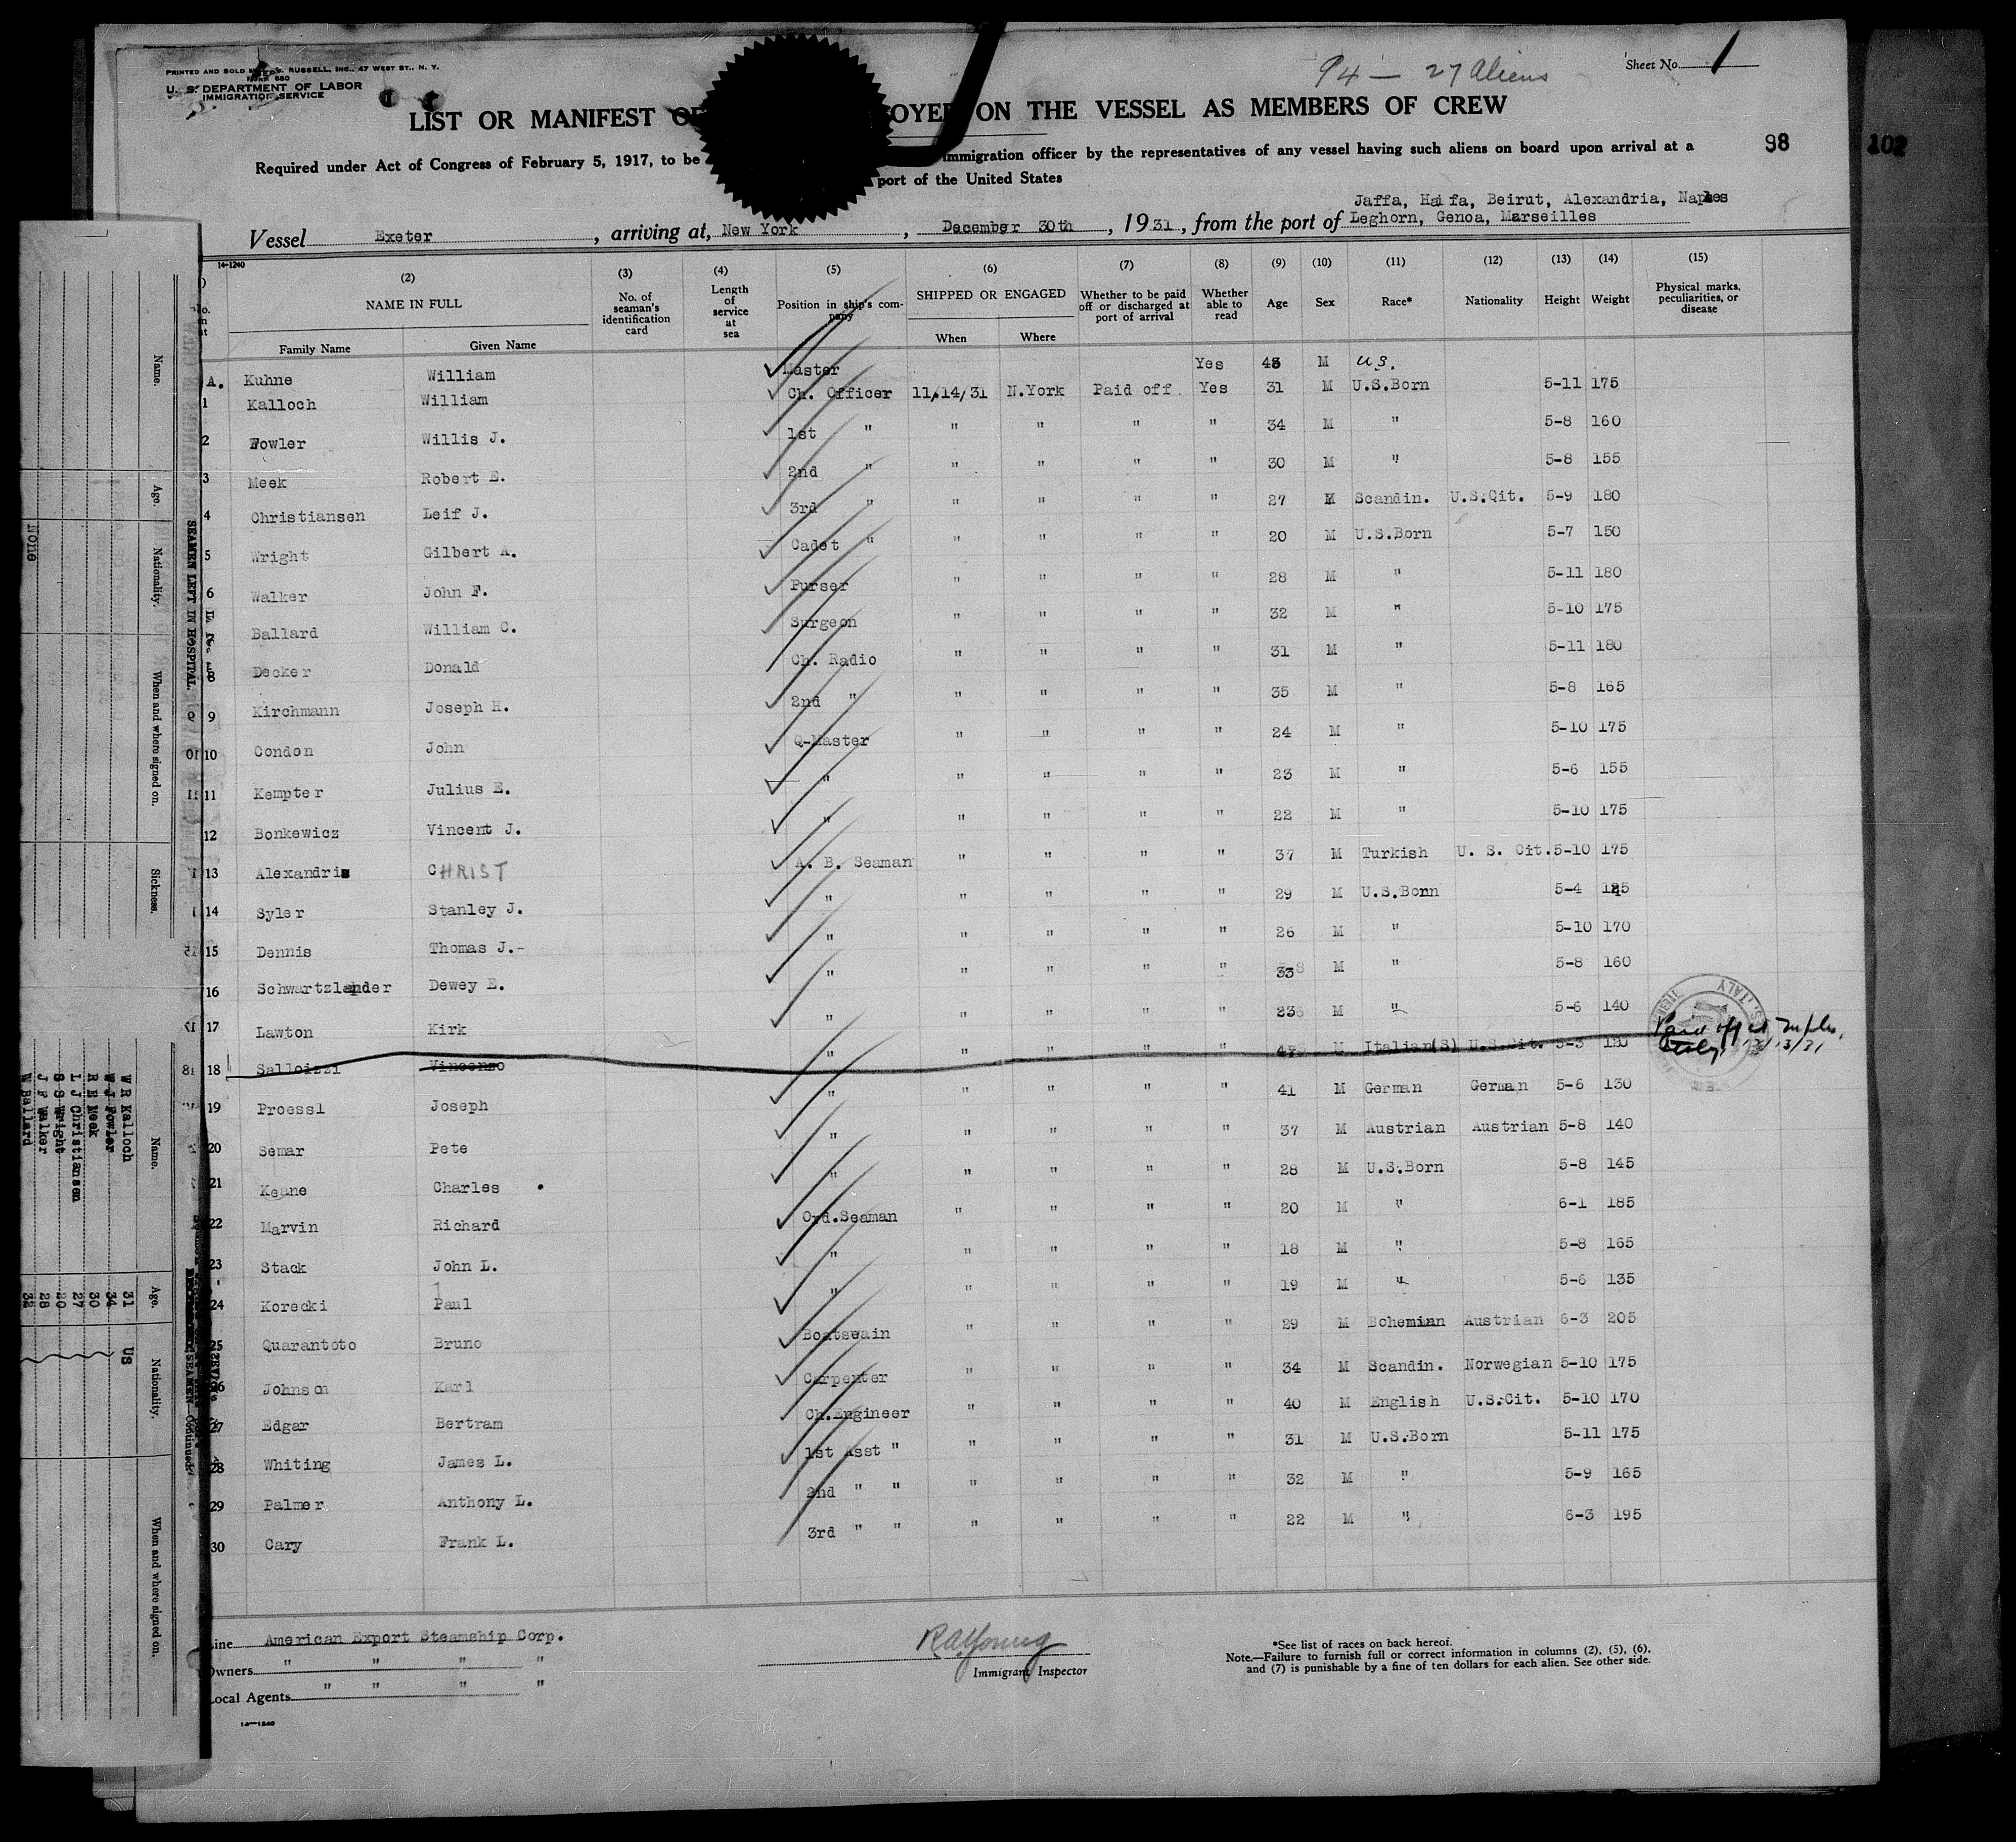 PRINTED AND SOLD RUSSELL, INC., 47 WEST ST., N. Y.
U. S. DEPARTMENT OF LABOR
IMMIGRATION SERVICE
94 — 27 Aliens
Sheet No. 1
LIST OR MANIFEST OF ON THE VESSEL AS MEMBERS OF CREW
98
102
Required under Act of Congress of February 5, 1917, to be immigration officer by the representatives of any vessel having such aliens on board upon arrival at a
port of the United States
Jaffa, Haifa, Beirut, Alexandria, Naples
Vessel Exeter, arriving at, New York, December 30th, 1931, from the port of Leghorn, Genoa, Marseilles
14-1240
(2) (3) (4) (5) (6) (7) (8) (9) (10) (11) (12) (13) (14) (15)
NAME IN FULL
Family Name Given Name
No. of seaman's identification card
Length of service at sea
Position in ship's company
SHIPPED OR ENGAGED
When Where
Whether to be paid off or discharged at port of arrival
Whether able to read
Age Sex Race* Nationality Height Weight
Physical marks, peculiarities, or disease
A. Kuhne William Master Yes M U.S.
1 Kalloch William Ch. Officer 11/14/31 N.York Paid off Yes 31 M U.S.Born 5-11 175
2 Fowler Willis J. 1st " " " " " 34 M " 5-8 160
3 Meek Robert E. 2nd " " " " " 30 M " 5-8 155
4 Christiansen Leif J. 3rd " " " " " 27 M Scandin. U.S.Cit. 5-9 180
5 Wright Gilbert A. Cadet " " " " " 20 M U.S.Born 5-7 150
6 Walker John F. Purser " " " " 28 M " 5-11 180
Ballard William C. Surgeon " " " " 32 M " 5-10 175
8 Decker Donald Ch. Radio " " " " 31 M " 5-11 180
9 Kirchmann Joseph H. 2nd " " " " " 35 M " 5-8 165
10 Condon John Q-Master " " " " 24 M " 5-10 175
11 Kempter Julius E. " " " " " 23 M " 5-6 155
12 Bonkewicz Vincent J. " " " " " 22 M " 5-10 175
13 Alexandris CHRIST A. B. Seaman " " " " 37 M Turkish U. S. Cit. 5-10 175
14 Syler Stanley J. " " " " " 29 M U.S.Born 5-4
15 Dennis Thomas J.- " " " " " 26 M " 5-10 170
16 Schwartzlander Dewey E. " " " " " 33 M " 5-8 160
17 Lawton Kirk " " " " " 23 M " 5-6 140
18 Salloizzi Vincenzo " " " " " M Italian(S) U.S.Cit. 5-3 120 Paid off at Naples, Italy, 12/13/31
19 Proessl Joseph " " " " " 41 M German German 5-6 130
20 Semar Pete " " " " " 37 M Austrian Austrian 5-8 140
21 Keane Charles " " " " " 28 M U.S.Born 5-8 145
22 Marvin Richard Ord.Seaman " " " " 20 M " 6-1 185
23 Stack John L. " " " " " 18 M " 5-8 165
24 Korecki Paul " " " " " 19 M " 5-6 135
25 Quarantoto Bruno Boatswain " " " " 29 M Bohemian Austrian 6-3 205
26 Johnson Karl Carpenter " " " " 34 M Scandin. Norwegian 5-10 175
27 Edgar Bertram Ch.Engineer " " " " 40 M English U.S.Cit. 5-10 170
28 Whiting James L. 1st Asst " " " " " 31 M U.S.Born 5-11 175
29 Palmer Anthony L. 2nd " " " " " " 32 M " 5-9 165
30 Cary Frank L. 3rd " " " " " " 22 M " 6-3 195
Line American Export Steamship Corp.
Owners " " " "
Local Agents " " " "
14—1240
R A Young
Immigrant Inspector
*See list of races on back hereof.
Note.—Failure to furnish full or correct information in columns (2), (5), (6),
and (7) is punishable by a fine of ten dollars for each alien. See other side.
ITALY
SEAMEN LEFT IN HOSPITAL.
Name. Age. Nationality. When and where signed on. Sickness.
None
Name. Age. Nationality. When and where signed on.
W R Kalloch 31 US
W J Fowler 34
R E Meek 30
L J Christiansen 27
Wright 20
J F Walker 28
W Ballard 32